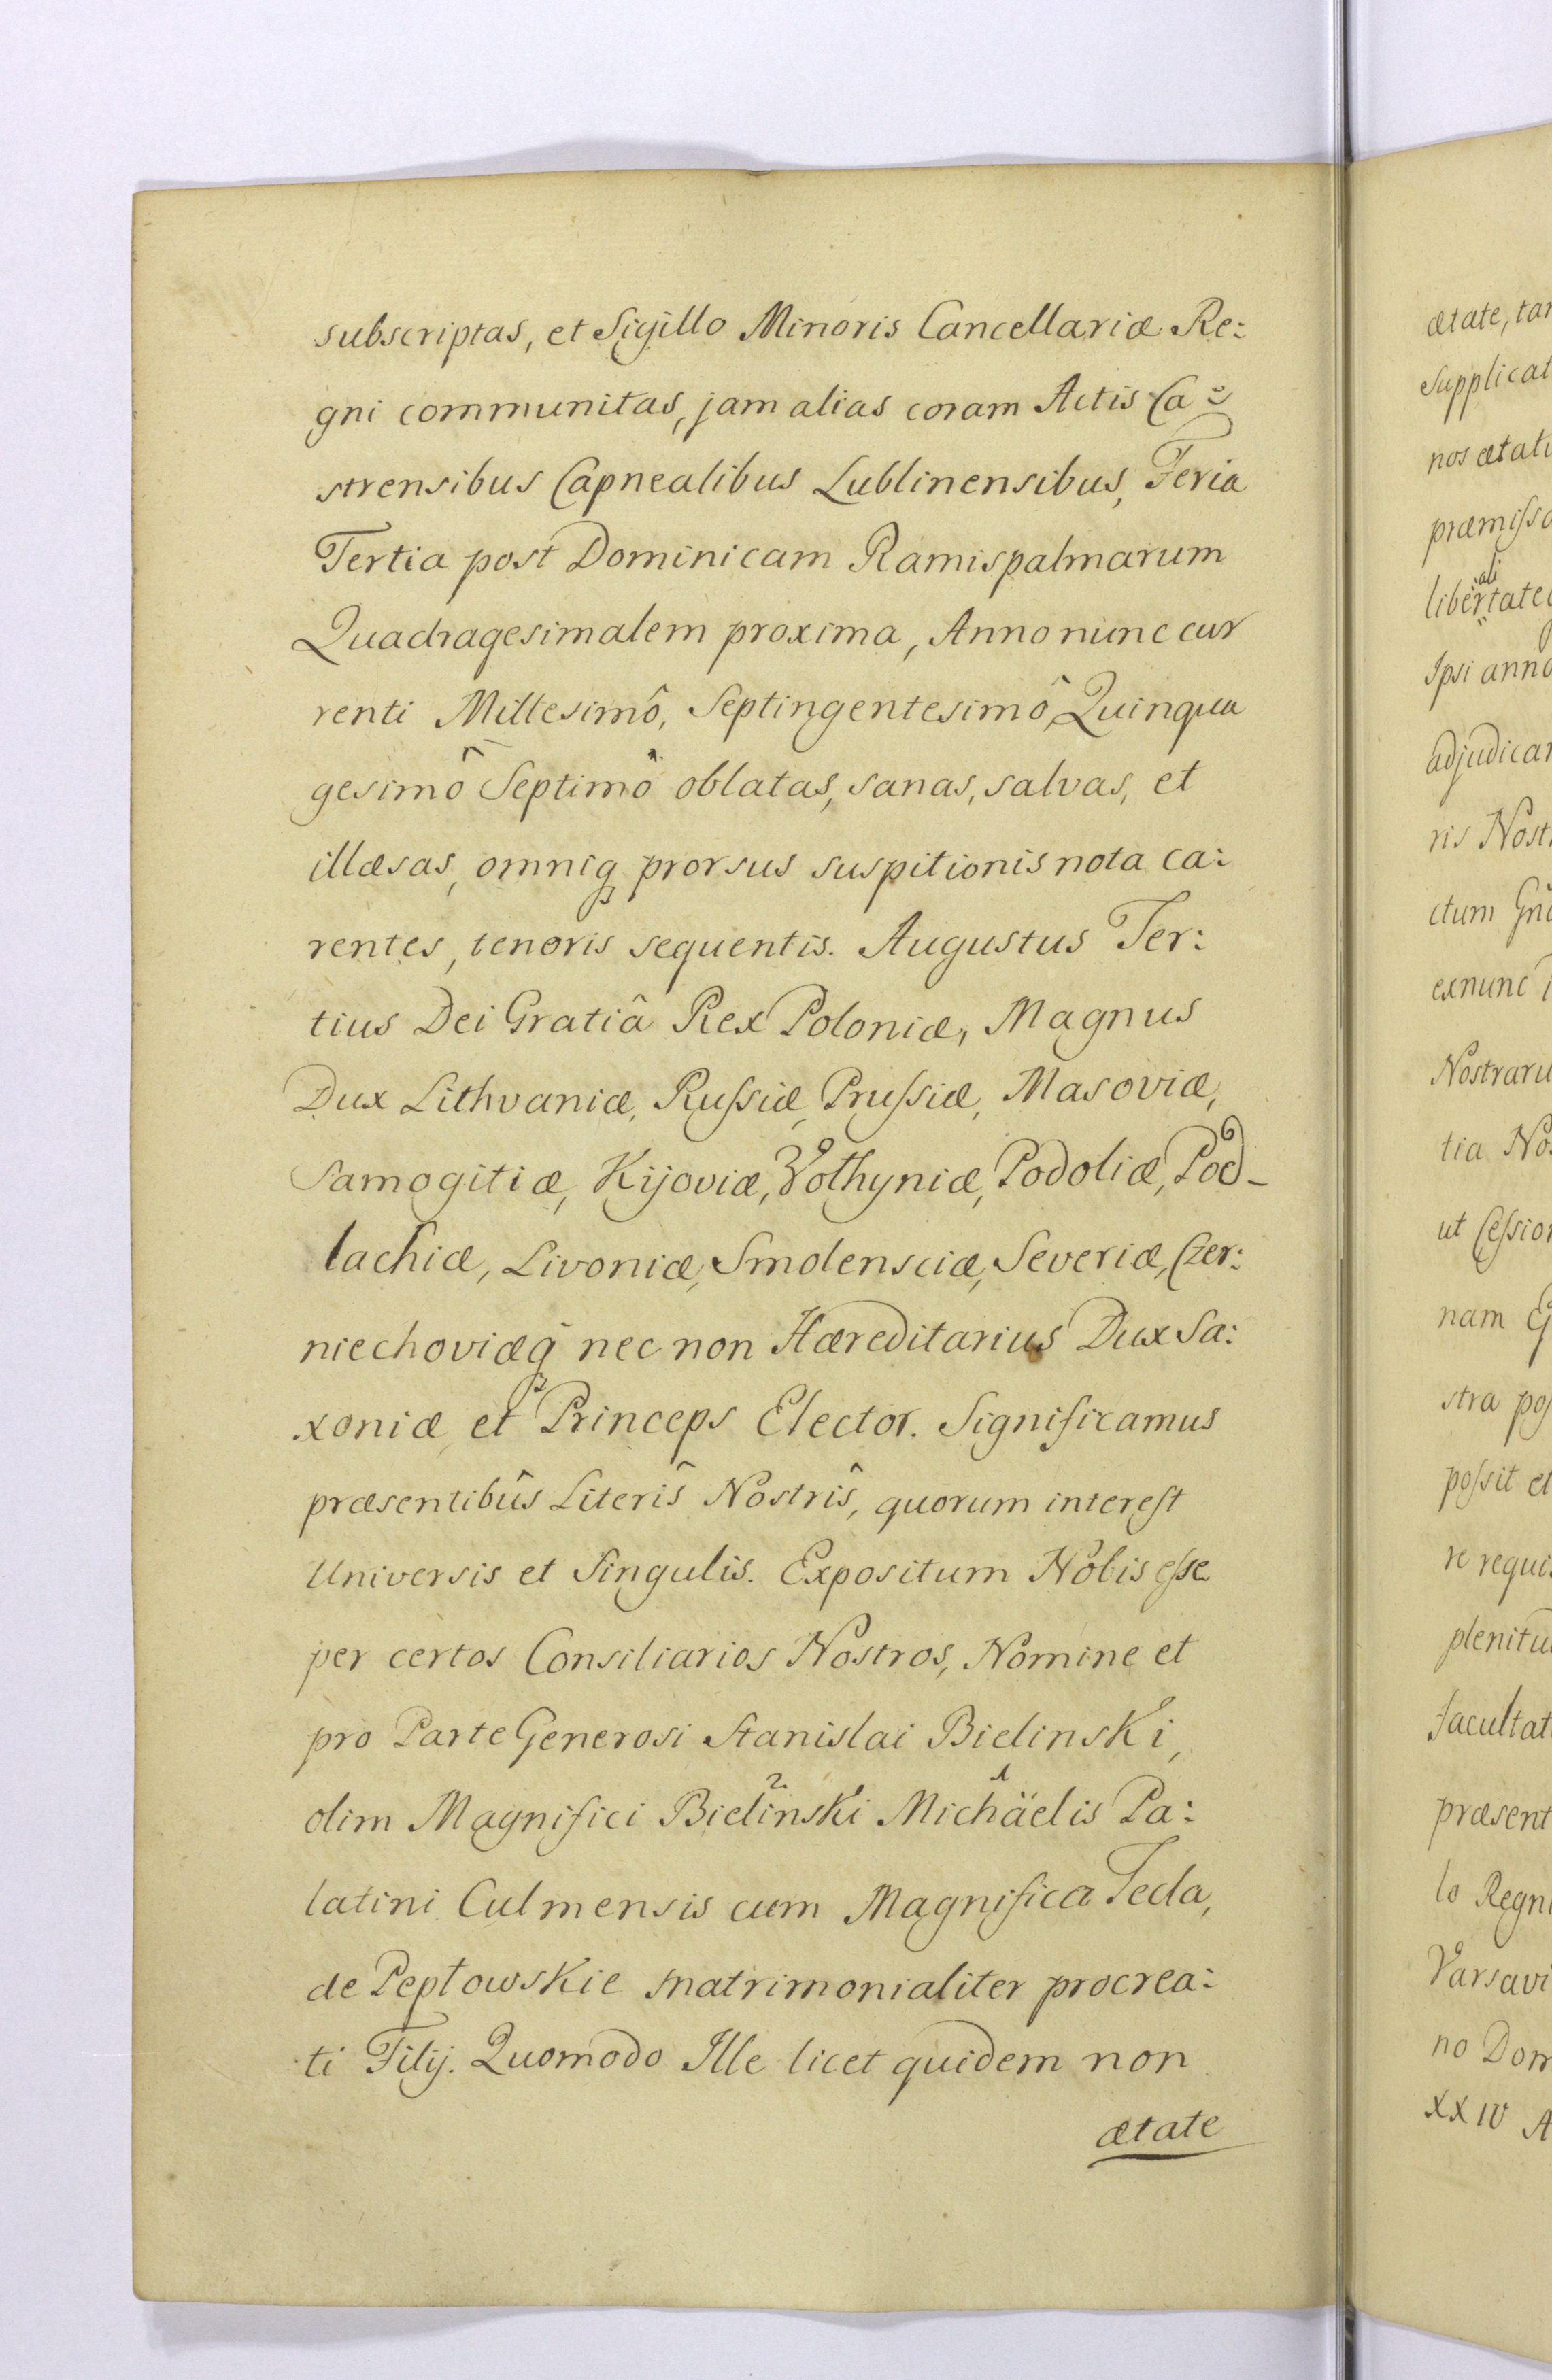 subscriptas, et Sigillo Minoris Cancellariæ Re:
gni communitas, jam alias coram Actis Ca:
strensibus Capnealibus Lublinensibus, Feria
Tertia post Dominicam Ramispalmarum
Quadragesimalem proxima, Anno nunc cur
renti Millesimô, Septingentesimô, Quinqua
gesimô Septimô oblatas, sanas, salvas, et
illæsas, omniq prorsus suspitionis nota ca:
rentes, tenoris sequentis. Augustus Ter:
tius Dei Gratiâ Rex Poloniæ, Magnus
Dux Lithvaniæ, Russiæ, Prussiæ, Masoviæ,
Samogitiæ, Kijoviæ, Vołhyniæ, Podoliæ, Pod-
lachiæ, Livoniæ, Smolensciæ, Severiæ, Czer:
niechoviæq nec non Hæreditarius Dux Sa:
xoniæ et Princeps Elector. Significamus
præsentibûs Literîs Nostrîs, quorum interest
Universis et Singulis. Expositum Nobis esse
per certos Consiliarios Nostros, Nomine et
pro Parte Generosi Stanislai Bielinski,
olim Magnifici Bielinski Michäelis Pa:
latini Culmensis cum Magnifica Tecla,
de Pepłowskie matrimonialiter procrea:
ti Filij. Quomodo Ille licet quidem non
ætate
ætate,
nos
Ipsi
ctum
exnunc
tia
ut
nam
stra
possit et
re
lo
no
XXIV